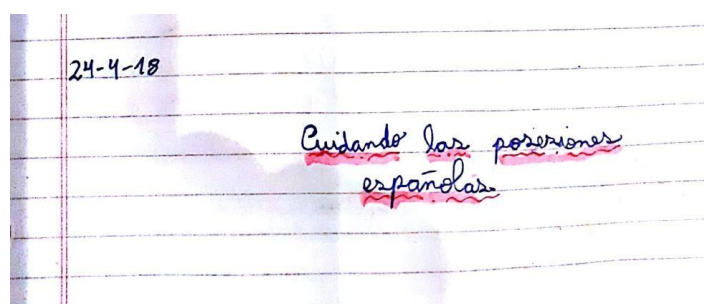 24-4-18
Cuidando las posesiones
españolas.